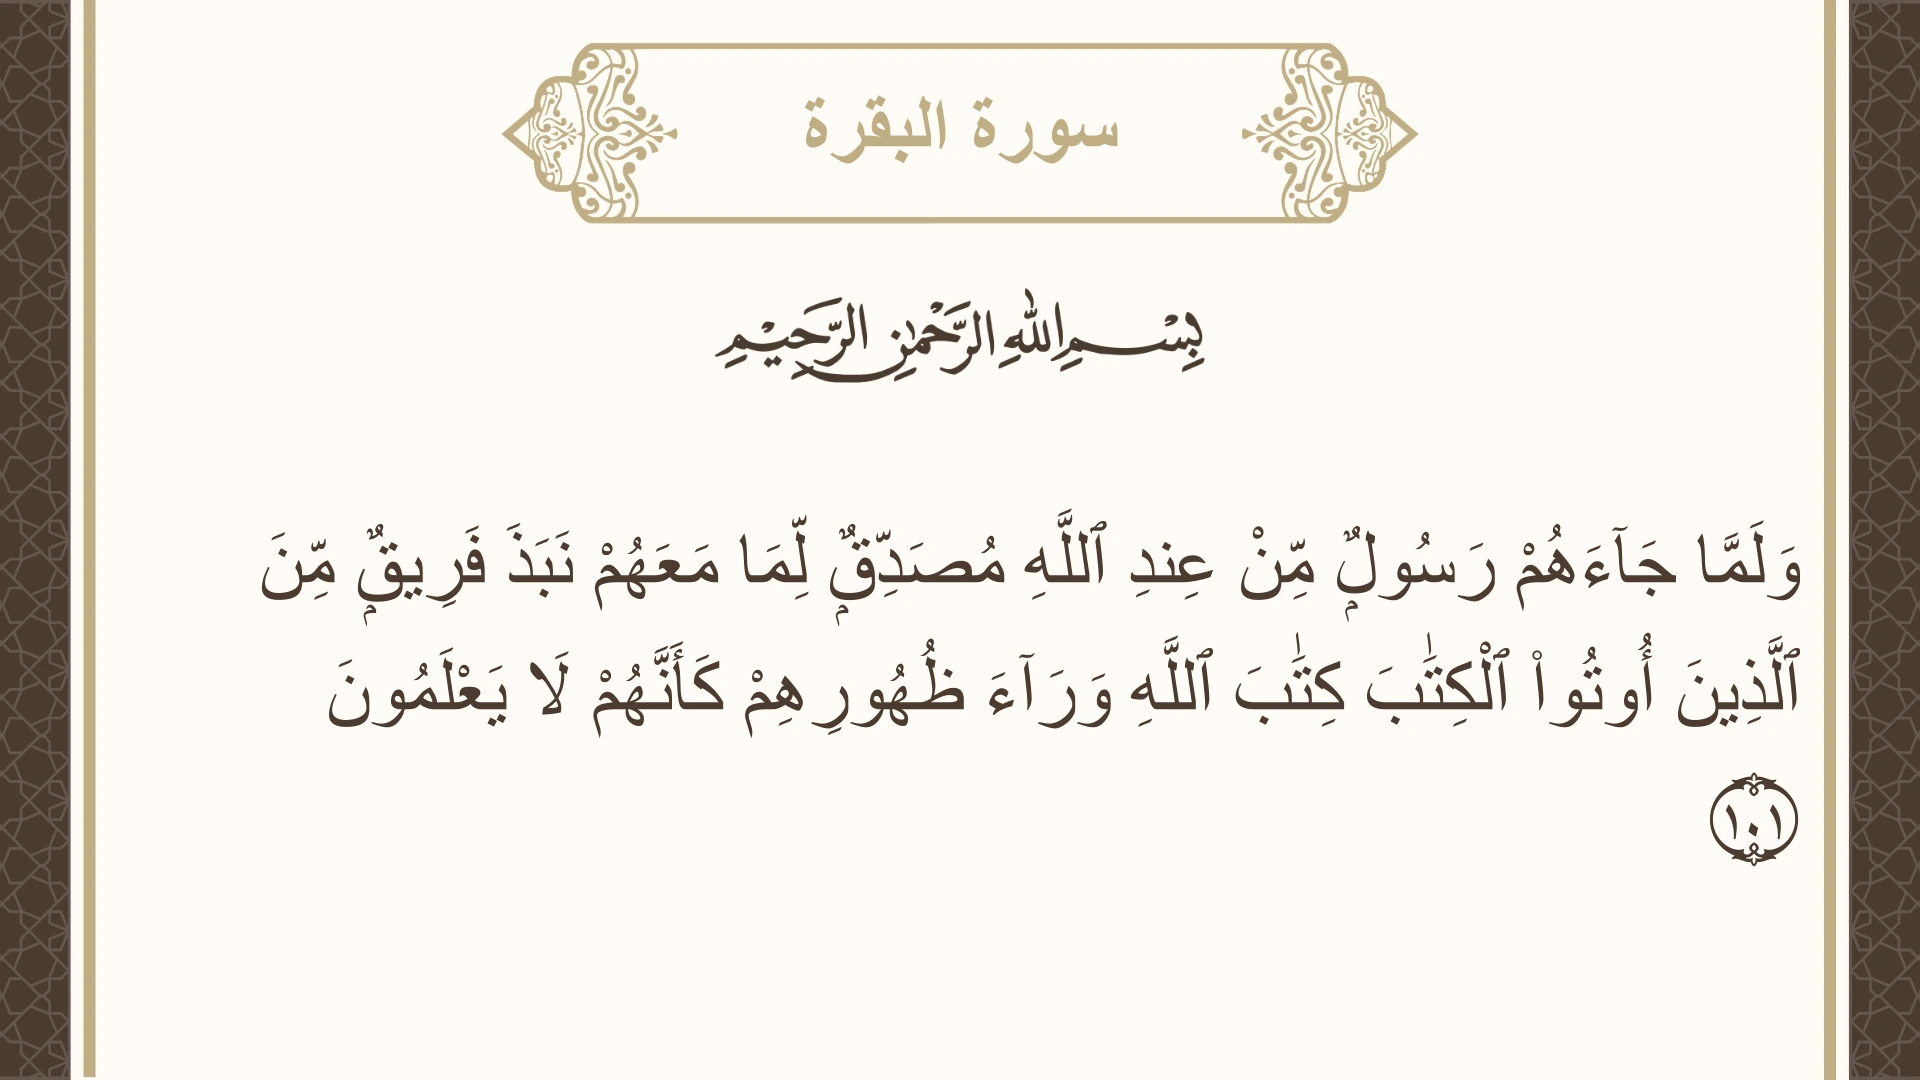 سورة البقرة
بِسْمِ اللهِ الرَّحْمٰنِ الرَّحِيْمِ
وَلَمَّا جَآءَهُمْ رَسُولٌۭ مِّنْ عِندِ ٱللَّهِ مُصَدِّقٌۭ لِّمَا مَعَهُمْ نَبَذَ فَرِيقٌۭ مِّنَ
ٱلَّذِينَ أُوتُوا۟ ٱلْكِتَٰبَ كِتَٰبَ ٱللَّهِ وَرَآءَ ظُهُورِهِمْ كَأَنَّهُمْ لَا يَعْلَمُونَ
١٠١